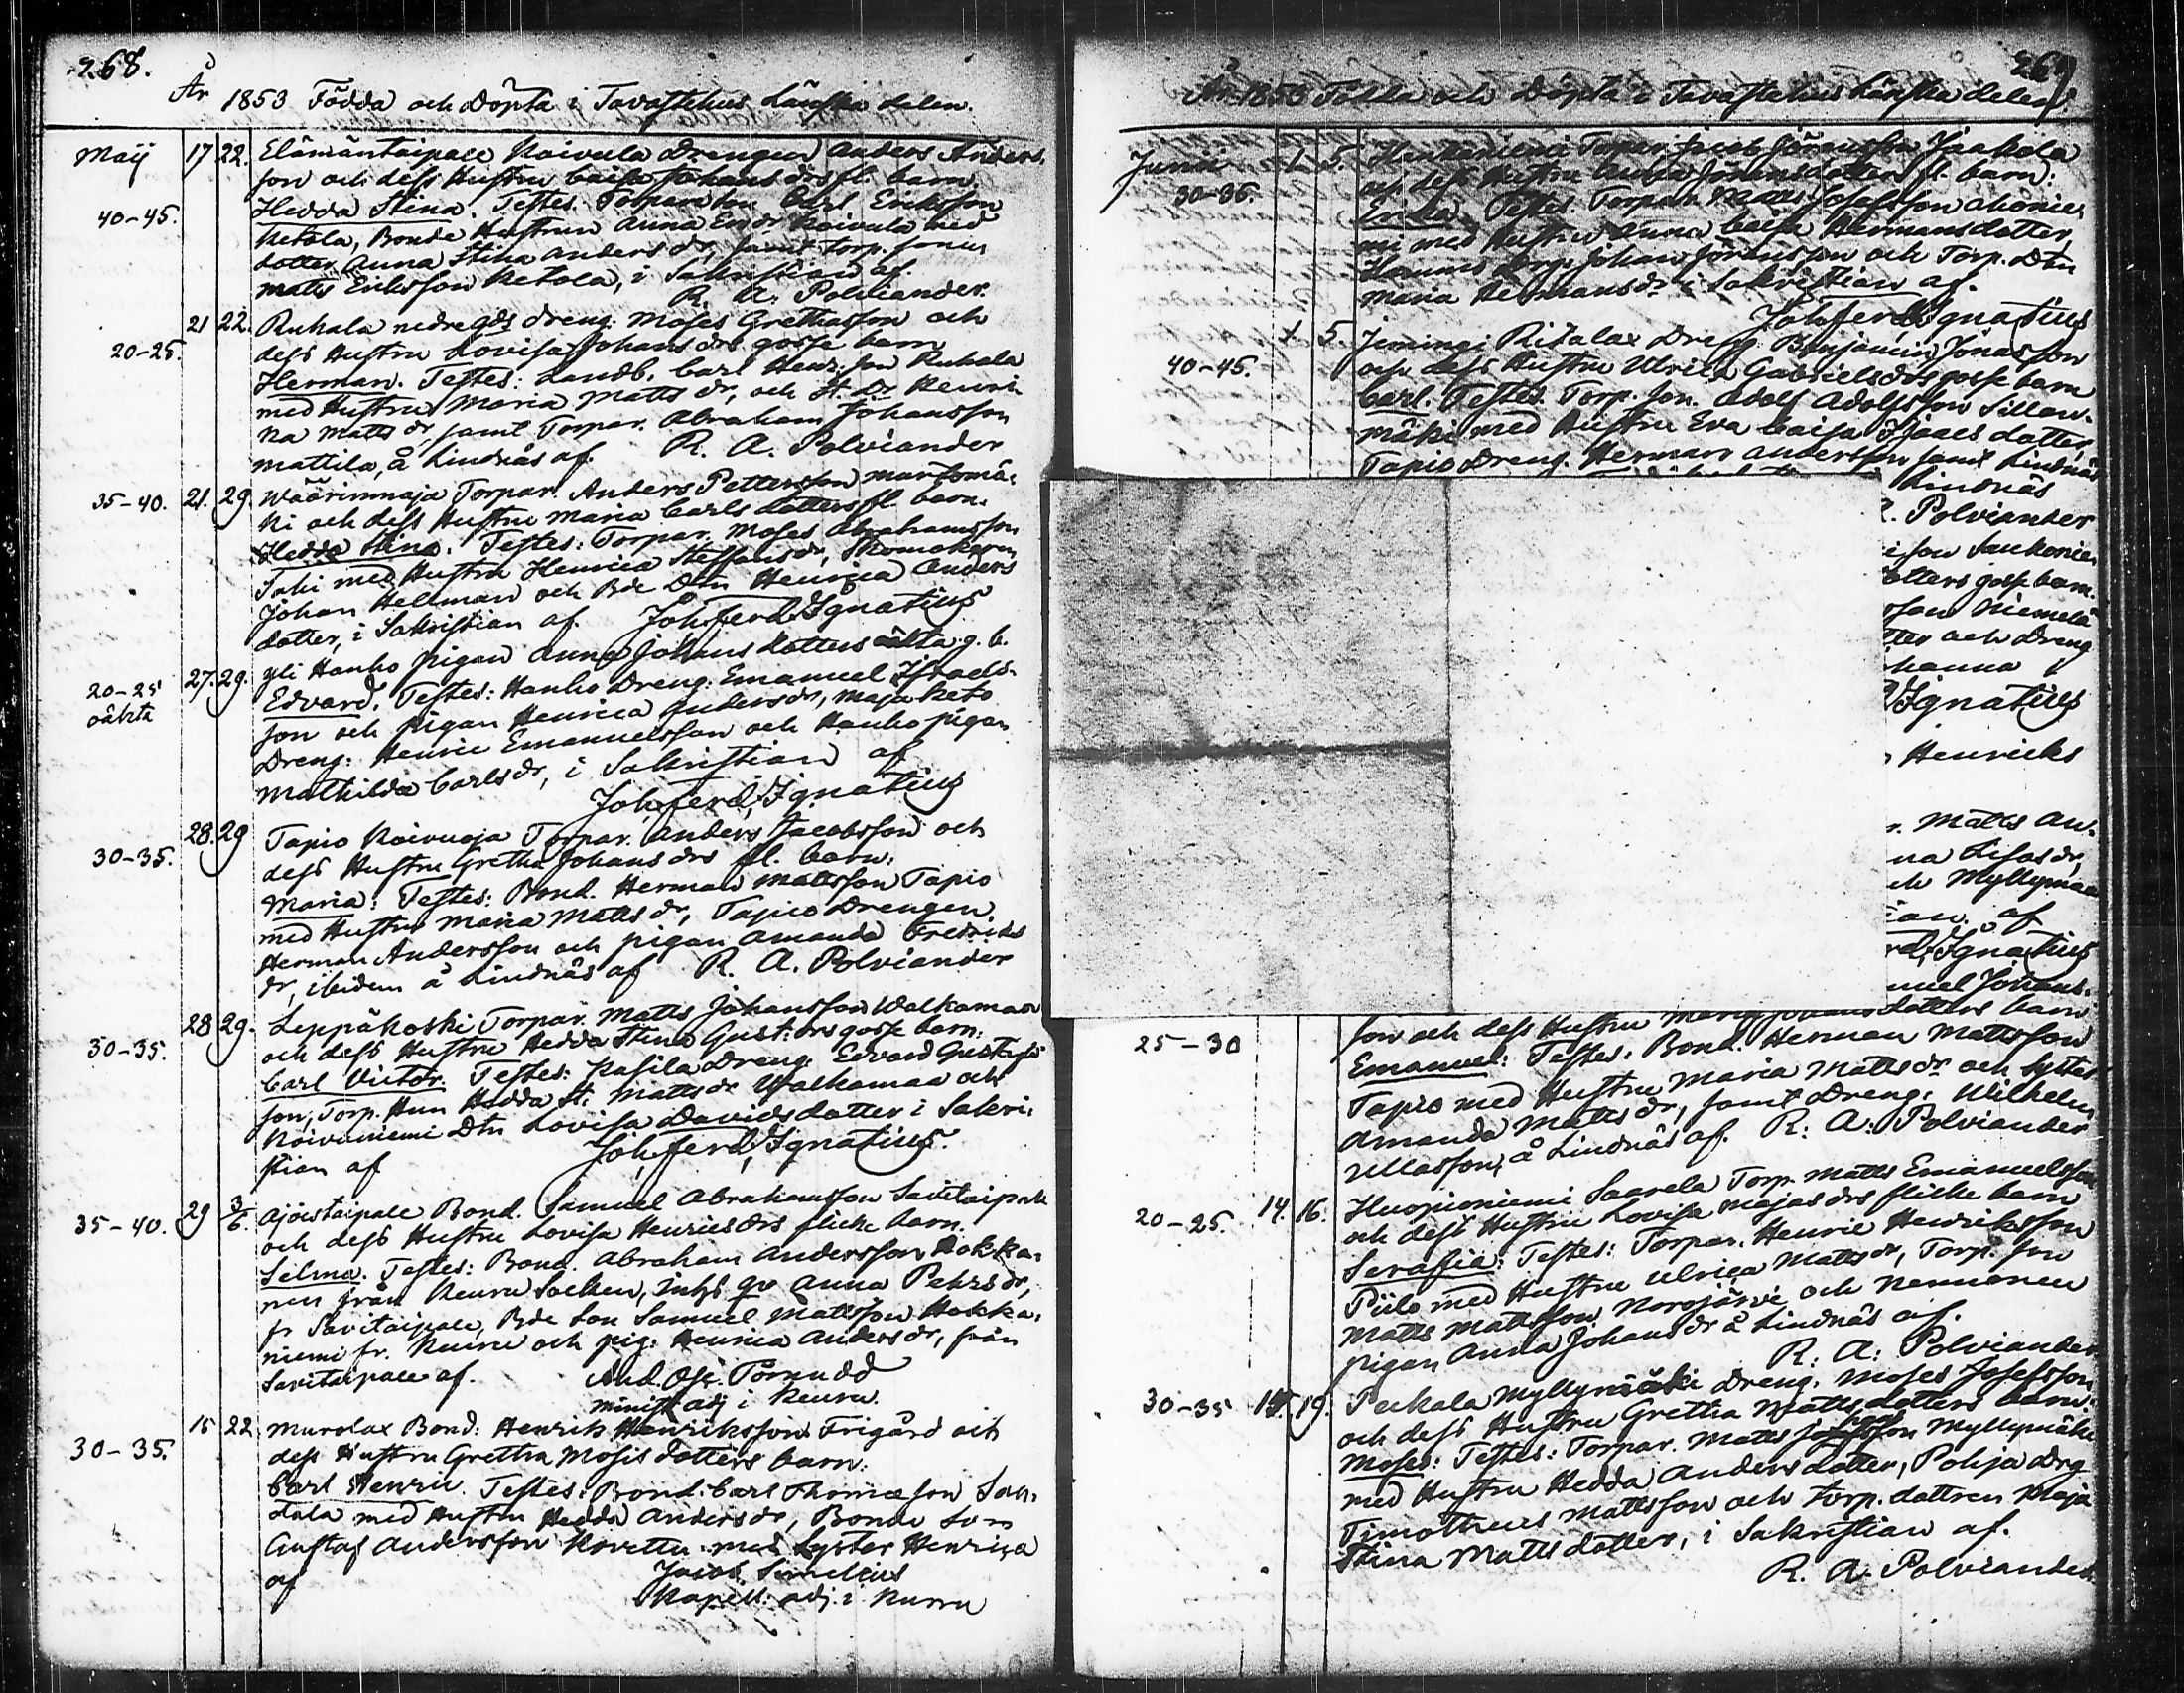 268.
År 1853 Födda och Döpta i Tavastehus Länska delen.
Maij 17 22. Elämäntaipale Koivula Drengen Anders Anders
40-45. son och dess Hustru Caisa Johans drs fl. barn
Hedda Stina. Testes. Torpareson Carl Eriksson
Ketola, Bonde Hustrun Anna Er.dr Koivula med
dotter Anna Stina Anders dr, samt Torp. sonen
Matts Eriksson Ketola, i Sakristian af.
R. A. Polviander.
20-25. 21 22. Ruhala nedregds dreng. Moses Grethasson och
dess Hustru Lovisa Johans drs gosse barn
Herman. Testes: Landb. Carl Henr:son Ruhala
med Hustru Maria Matts dr, och H. Dr Henri
ka Matts dr, samt Torpar. Abraham Johansson
Mattila, å Lindnäs af. R. A. Polviander
35-40. 21. 29 Väärinmaja Torpar. Anders Pettersson Martomä,
ki och dess Hustru Maria Carls dotters fl. barn.
Hedda Stina. Testes: Torpar. Moses Abrahamsson
Saki med Hustru Henrica Steffans dr, Skomakaren
Johan Hellman och Bde Dtn Henrica Anders
dotter, i Sakristian af. Joh. Ferd. Ignatius
20-25 oäkta 27. 29. Yli Hanho pigan Anna Johans dotters oäkta g. b.
Edvard. Testes: Hanho Dreng. Emanuel Israels-
son och pigan Henrica Anders dr, Maja Keto
Dreng: Henric Emanuelsson och Hanho pigan
Mathilda Carls dr, i Sakristian af
Joh. Ferd. Ignatius
30-35. 28. 29 Tapio Koivuoja Torpar. Anders Jacobsson och
dess Hustru Gretha Johans drs fl. barn.
Maria: Testes: Bond. Herman Mattsson Tapio
med Hustru Maria Matts dr, Tapio Drengen
Herman Andersson och pigan Amanda Fredriks
dr, ibidem å Lindnäs af R. A. Polviander
30-35. 28 29. Leppäkoski Torpar. Matts Johansson Walkamaa
och dess Hustru Hedda Stina Gust: drs gosse barn:
Carl Victor. Testes: Pasila Dreng. Edvard Gustafs
son, Torp. Hun Hedda St. Matts dr Walkamaa och
Koivuniemi Dtn Lovisa Davids dotter i Sakri,
stian af Joh. Ferd. Ignatius.
35-40. 29 3/6. Ajöistaipale Bond. Samuel Abrahamsson Savitaipale
och dess Hustru Lovisa Henrics drs flicke barn.
Selma. Testes: Bond. Abraham Andersson Hokka,
nen från Keuru Socken, Inhs qv Anna Pehrs dr,
fr Savitaipale, Bde Son Samuel Mattsson Hokka,
niemi fr. Keuru och pig: Henrica Anders dr, från
Savitaipale af. And. Osc. Törnudd
minist. adj i Keuru.
30-35. 15 22 Murolax Bond: Henrik Henriksson Frigård och
dess Hustru Gretha Mosis dotters barn:
Carl Henric. Testes: Bond: Carl Thomæson San,
tala med Hustru Hedda Anders dr, Bonde Son
Gustaf Andersson Koverttu. med Syster Henrica
af Jacob Simelius
Kapell. adj. i Kuru
269
År 1853 Födda och Döpta i Tavastehus Länska delen
Junii 1. 5. Torpar Jacob Göransson Jaakola
30-35. och dess Hustru Anna Jörans dotters fl. barn:
Testes. Torpar. Matts Josefsson Ahonie,
mi med Hustru Anna Caisa Hermansdotter,
Torp. Johan Göransson och Torp. Dtn
Maria Hermans dr i Sakristian af.
Joh. Ferd. Ignatius
40-45. 1. 5. Jämingi Ritalax Dreng. Benjamin Jonasson
och dess Hustru Ulrica Gabriels drs gosse barn
Carl. Testes. Torp. son. Adolf Adolfsson Sillan-
mäki med Hustru Eva Caisa Isaacs dotter,
Tapio Dreng. Herman Andersson samt Lindnäs
Lindnäs
R. Polviander
son Saukonie
dotters gosse barn.
sson Niemelä
tter och Dreng
hanna
Ignatius
Henricks
r. Matts An-
na Lisas dr,
och Myllymaa
ian. af
rd. Ignatius
nuel Johans.
25-30 son och dess Hustru Maria Johans dotters barn
Emanuel: Testes. Bond. Herman Mattsson
Tapio med Hustru Maria Matts dr och Syster
Amanda Matts dr, samt Dreng. Wilhelm
Ullasson, å Lindnäs af. R: A: Polviander
20-25. 14. 16. Huopioniemi Saarela Torp. Matts Emanuelsson
och dess Hustru Lovisa Majas drs flicke barn
Serafia: Testes: Torpar. Henric Henriksson
Piilo med Hustru Ulrica Matts dr, Torp. son
Matts Mattsson Norojärvi och Nenonen
pigan Anna Johans dr å Lindnäs af.
R: A: Polviander
30-35 15. 19. Peckala Myllymäki Dreng. Moses Josefsson
och dess Hustru Gretha Matts dotters barn.
Moses: Testes: Torpar. Matts Johansson Myllymäki
med Hustru Hedda Anders dotter, Pohja drg
Timotheus Mattsson och torp. dottren Maja
Stina Matts dotter, i Sakristian af.
R. A. Polviander.